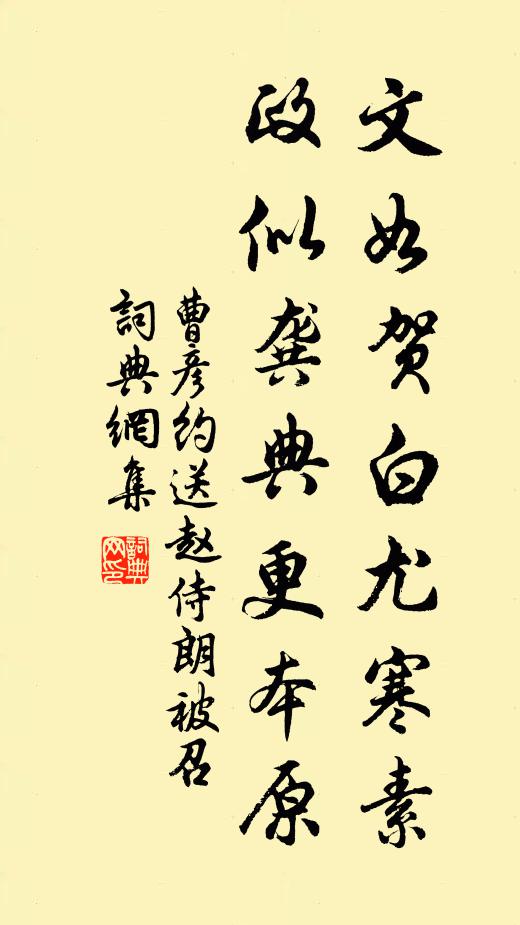 文如贺白尤寒素
政似龚典更本原
曹彦約送赵侍朗被召
詞典網集
詞典网印